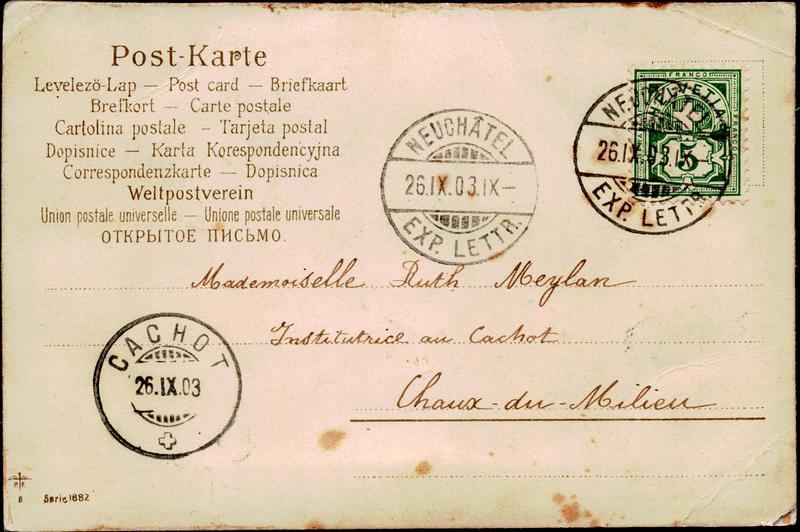 Post-Karte
Levelezö-Lap — Post card — Briefkaart
Brefkort — Carte postale
Cartolina postale — Tarjeta postal
Dopisnice — Karta Korespondencyjna
Correspondenzkarte — Dopisnica
Weltpostverein
Union postale universelle — Unione postale universale
ОТКРЫТОЕ ПИСЬМО.
NEUCHÂTEL
26.IX.03.IX—
EXP. LETTR.
FRANCO
HELVETIA
FRANCO
5
26.IX.03.IX
EXP. LETTR.
Mademoiselle Ruth Meylan
Institutrice au Cachot
Chaux-du-Milieu
CACHOT
26.IX.03
8 Serie 1882